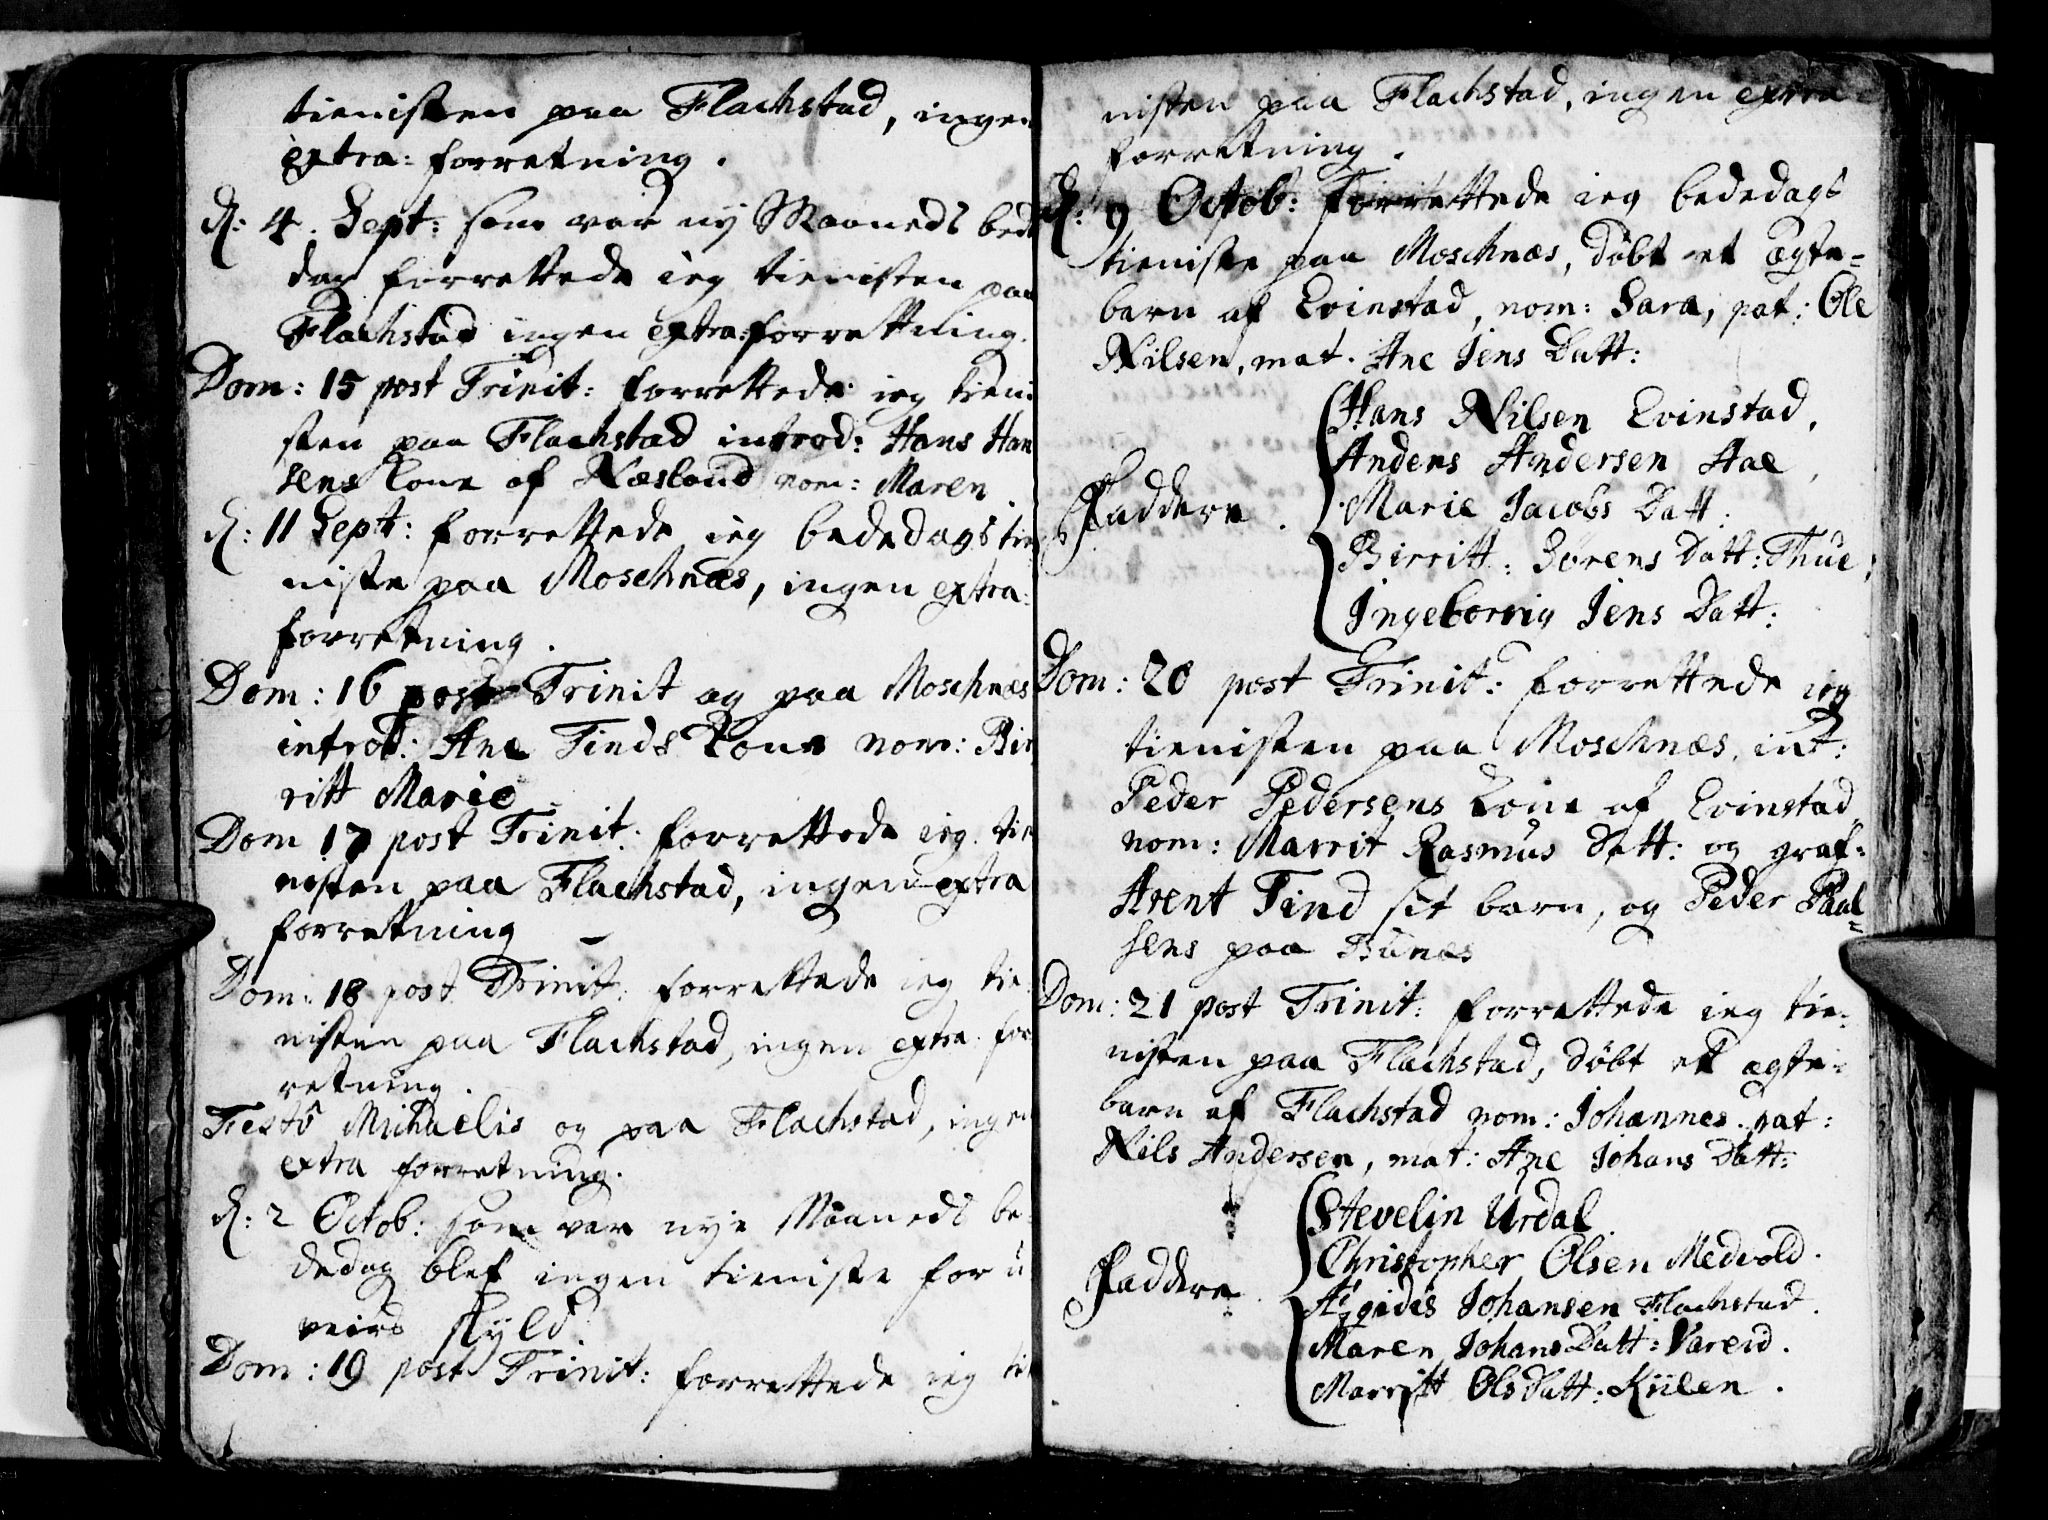 tienisten paa Flachstad, ingen
extra: forretning.
d: 4. Sept: som var ny Maaneds bede
dag forrettede ieg tienisten paa
Flachstad ingen extra: forrettning.
Dom: 15 post Trinit: forrettede ieg tieni
sten paa Flachstad introd: Hans Han
sens kone af Næsland nom: Maren.
d: 11 Sept: forrettede ieg bededags tie
niste paa Moschnæs, ingen extra:
forretning.
Dom: 16 post Trinit og paa Moschnæs
introd: Ane Finds kone nom: Bir
ritt Marie
Dom 17 post Trinit: forrettede ieg tie
nisten paa Flachstad, ingen extra
forretning
Dom: 18 post Trinit: forrettede ieg tie:
nisten paa Flachstad, ingen extra for
retning.
Festo Michaelis og paa Flachstad, ingen
extra forretning.
d: 2 Octob: som var nye Maaneds be:
dedag blef ingen tieniste for u
veirs skyld.
Dom: 19 post Trinit: forrettede ieg tie
nisten paa Flachstad, ingen extra
forretning.
d: 9 Octob: Forrettede ieg bededags
tieniste paa Moschnæs, døbt et ægte=
barn af Evinstad, nom: Sara, pat: Ole
Nilsen, mat. Ane Jens Datt:
Hans Nilsen Evinstad,
Anders Andersen Aae,
Faddere. Marie Jacobs Datt:
Birritt: Sørens Datt: Thue;
Ingeborrig Jens Datt:
Dom: 20 post Trinit: forrettede ieg
tienisten paa Moschnæs, int:
Peder Pedersens kone af Evinstad
nom: Marrit Rasmus Datt: og graf=
Arent Find sit barn, og Peder Paul=
sens paa Bunæs
Dom: 21 post Trinit: forrettede ieg tie=
nisten paa Flachstad, døbt et ægte=
barn af Flachstad nom: Johannes. pat:
Nils Andersen, mat: Ane Johans Datt:
Stevelin Urdal
Christopher Olsen Medvold.
Faddere Ægidis Johansen Flachstad.
Maren Johans Datt: Vareid.
Marritt Ols Datt: Kiilen.